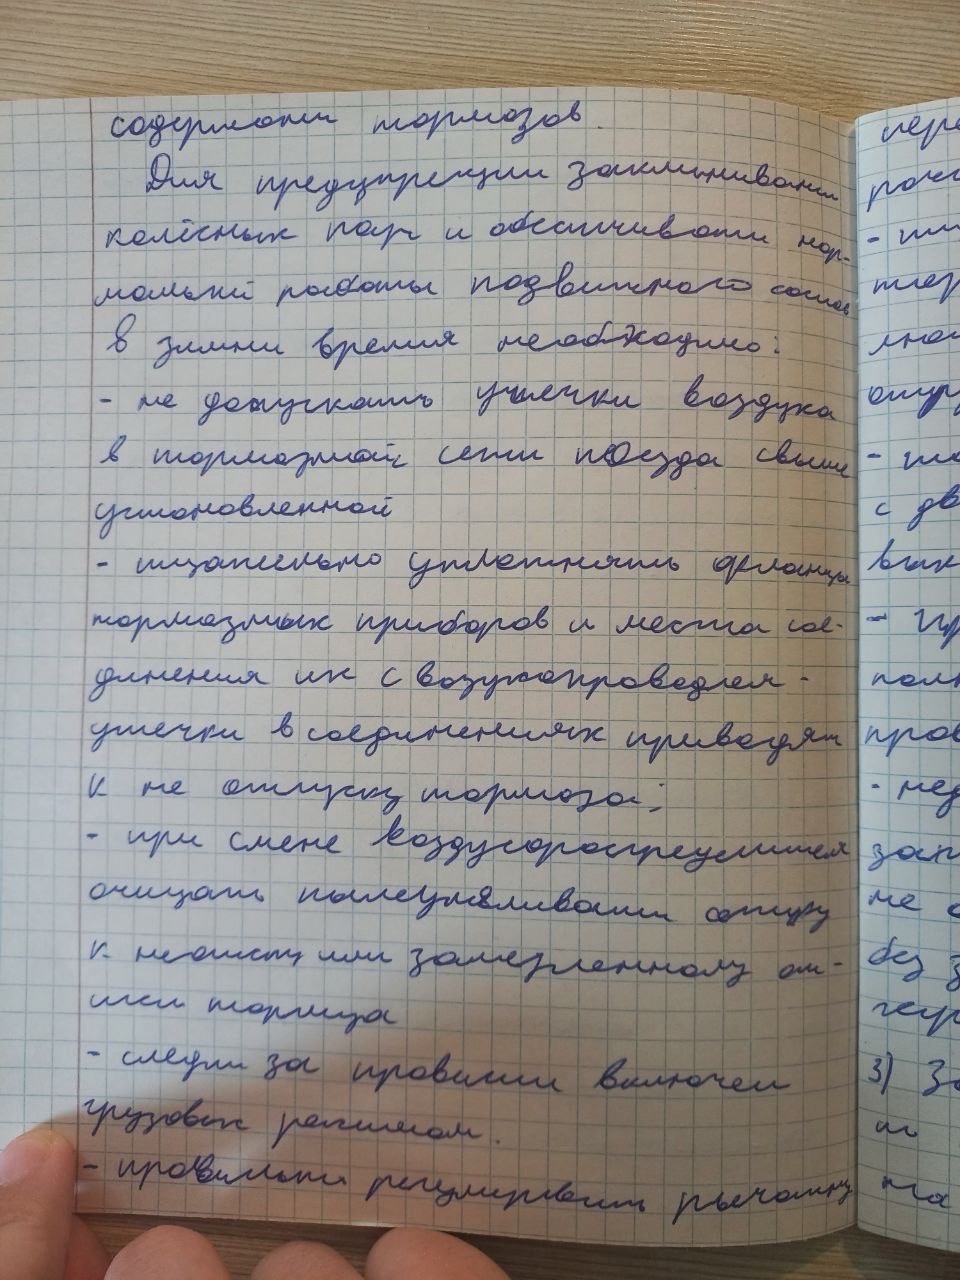 содержании тормозов.
Для предупреждении заклинивании
колёсных пар и обеспечивании нор-
мальной работы подвижного состава
в зимни время необходимо:
- не допускать утечки воздуха
в тормозной сети поезда свыше
установленной
- тщательно уплотнять фланцы
тормозных приборов и места сое-
динения их с воздухопроводом -
утечки в соединениях приводят
к не отпуску тормоза;
- при смене воздухораспределителя
очищать
к неотпуску или замедленному от-
тормоза
- следи за правильн включен
грузовых режимом.
- правильно регулировать рычажну
пере
- ти
тер
- то
с дв
вык
- пр
полн
пров
- нед
зап
не о
без з
3) За
то
на